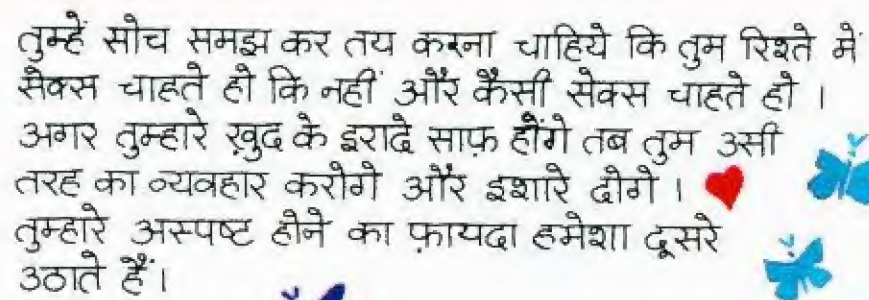 तुम्हें सोच समझ कर तय करना चाहिये कि तुम रिश्ते में
सेक्स चाहते हो कि नहीं और कैसी सेक्स चाहते हो ।
अगर तुम्हारे ख़ुद के इरादे साफ़ होंगे तब तुम उसी
तरह का व्यवहार करोगे और इशारे दोगे ।
तुम्हारे अस्पष्ट होने का फ़ायदा हमेशा दूसरे
उठाते हैं ।